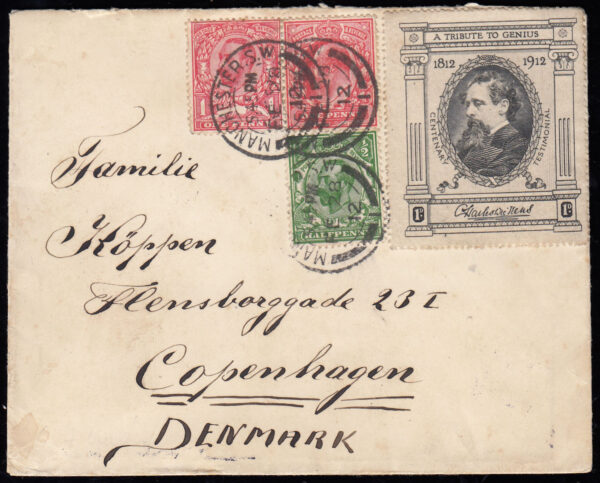 A TRIBUTE TO GENIUS
1812 1912
CENTENARY TESTIMONIAL
1D Charles Dickens 1D
MANCHESTER S.W.
12
12
Familie
Köppen
Flensborggade 23 I
Copenhagen
DENMARK